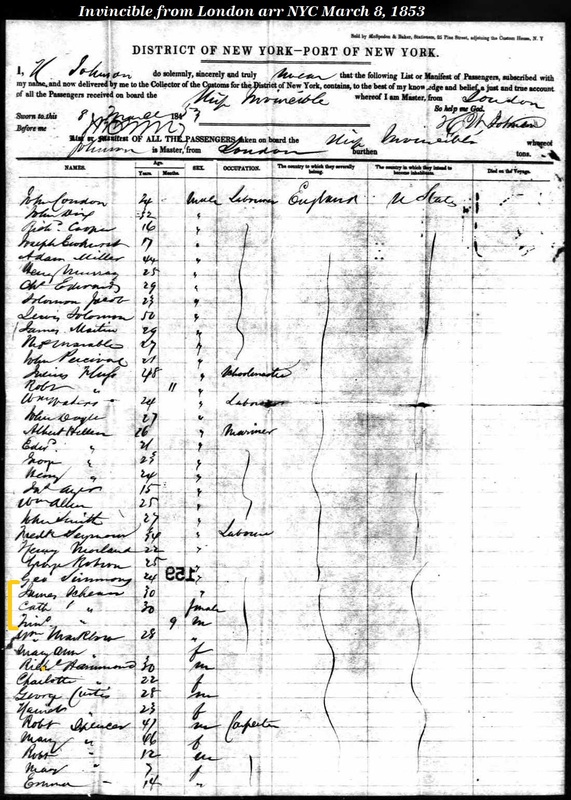 Invincible from London arr NYC March 8, 1853
Sold by & Baker, Stationers, 25 Pine Street, adjoining the Custom House, N. Y
DISTRICT OF NEW YORK—PORT OF NEW YORK.
I, Johnson do solemnly, sincerely and truly swear that the following List or Manifest of Passengers, subscribed with
my name, and now delivered by me to the Collector of the Customs for the District of New York, contains, to the best of my knowledge and belief, a just and true account
of all the Passengers received on board the Ship Invincible whereof I am Master, from London
Sworn this 8 March 185 So help me God.
Before me Johnson
List or Manifest OF ALL THE PASSENGERS taken on board the Ship Invincible whereof
Johnson is Master, from London burthen tons.
NAMES. Age. Years. Months. SEX. OCCUPATION. The country to which they severally belong. The country to which they intend to become inhabitants. Died on the Voyage.
John Condon 24 Male Labourer England U States
John 32 "
Richd. Cooper 16 "
Joseph 17 "
Adam Miller 44 "
Henry Murray 25 "
Chs Edwards 29 "
Solomon Jacob 23 "
Lewis Solomon 50 "
James Martin 29 "
Thos Marable 27 "
John Percival 21 "
Julius 48 " Schoolmaster
Robt " 11 "
Wm Waters 24 " Labourer
John Doyle 27 "
Albert 26 " Mariner
Edwd. " 21 "
George " 23 "
Henry " 24 "
15 "
Wm Allen 25 "
John Smith 27 "
Fredk Seymour 34 " Labourer
Henry Morland 22 "
George Robson 25 "
Geo Simmons 24 "
159
James 30 "
Cath " 30 female
" 9 m
Wm Marklow 28 "
Mary Ann " f
Richd Hammond 30 m
Charlotte " 22 f
George Curtis 28 m
" 23 f
Robt Spencer 47 m Carpenter
Mary " 46 f
Robt " 12 m
Mary " 7 f
Emma " 14 "